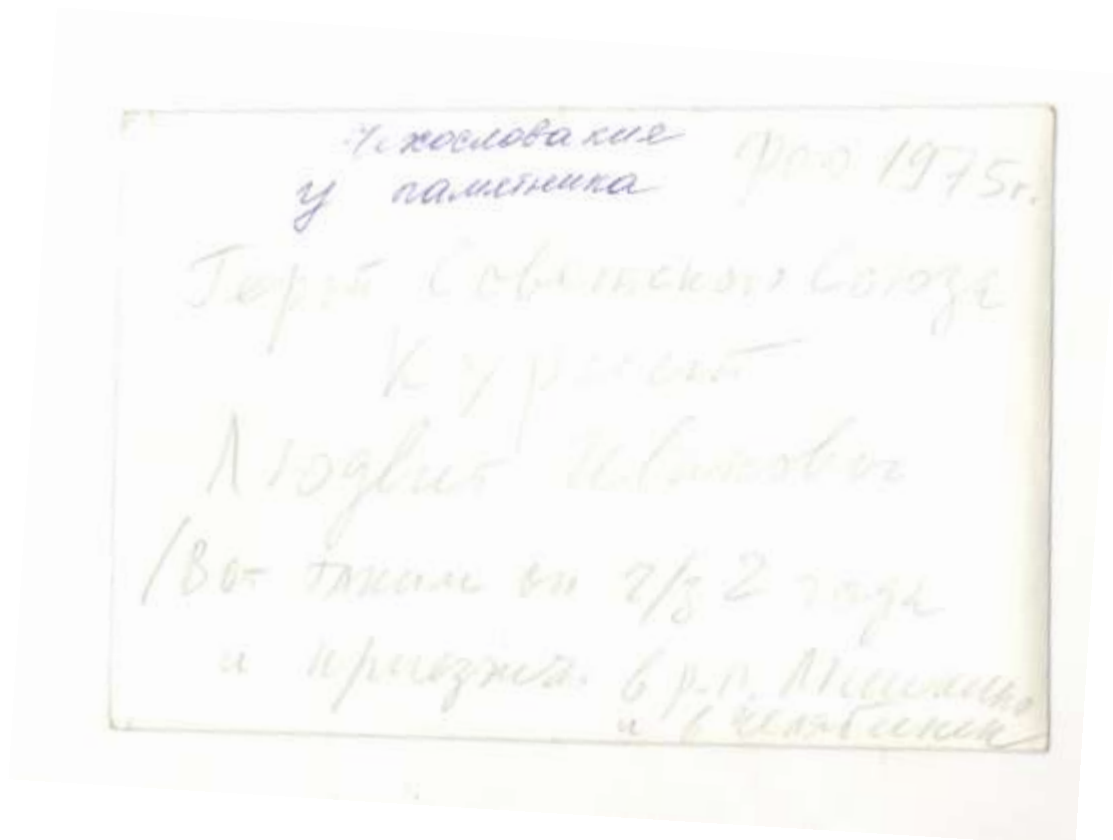 Чехословакия
у памятника
Фото 1975г.
Герой Советского Союза
Курист
Людвиг Иванович
/Вот таким он ч/з 2 года
и приезжал в р.п. Мишкино
и в Челябинск